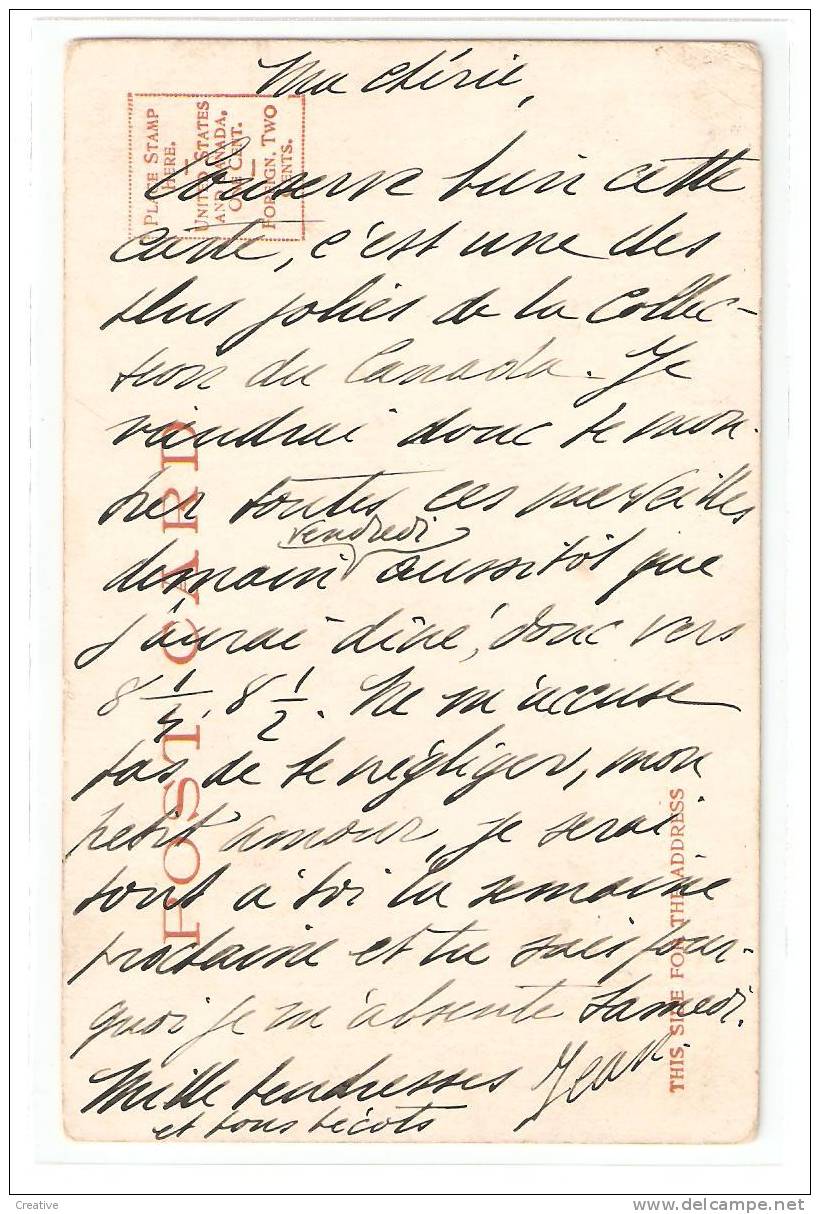 Ma chérie,
Conserve bien cette
carte, c'est une des
plus jolies de la collec-
tion du Canada. Je
viendrai donc te mon-
trer toutes ces merveilles
demain vendredi aussitôt que
j'aurai diné, donc vers
8 1/4, 8 1/2. Ne m'accuse
pas de te négliger, mon
petit amour, je serai
tout à toi la semaine
prochaine et tu sais pour-
quoi je m'absente Samedi.
Mille tendresses Jean.
et bons bécots
PLACE STAMP
HERE.
UNITED STATES
AND CANADA,
ONE CENT.
FOREIGN, TWO
CENTS.
POST CARD
THIS SIDE FOR THE ADDRESS
Creative
www.delcampe.net